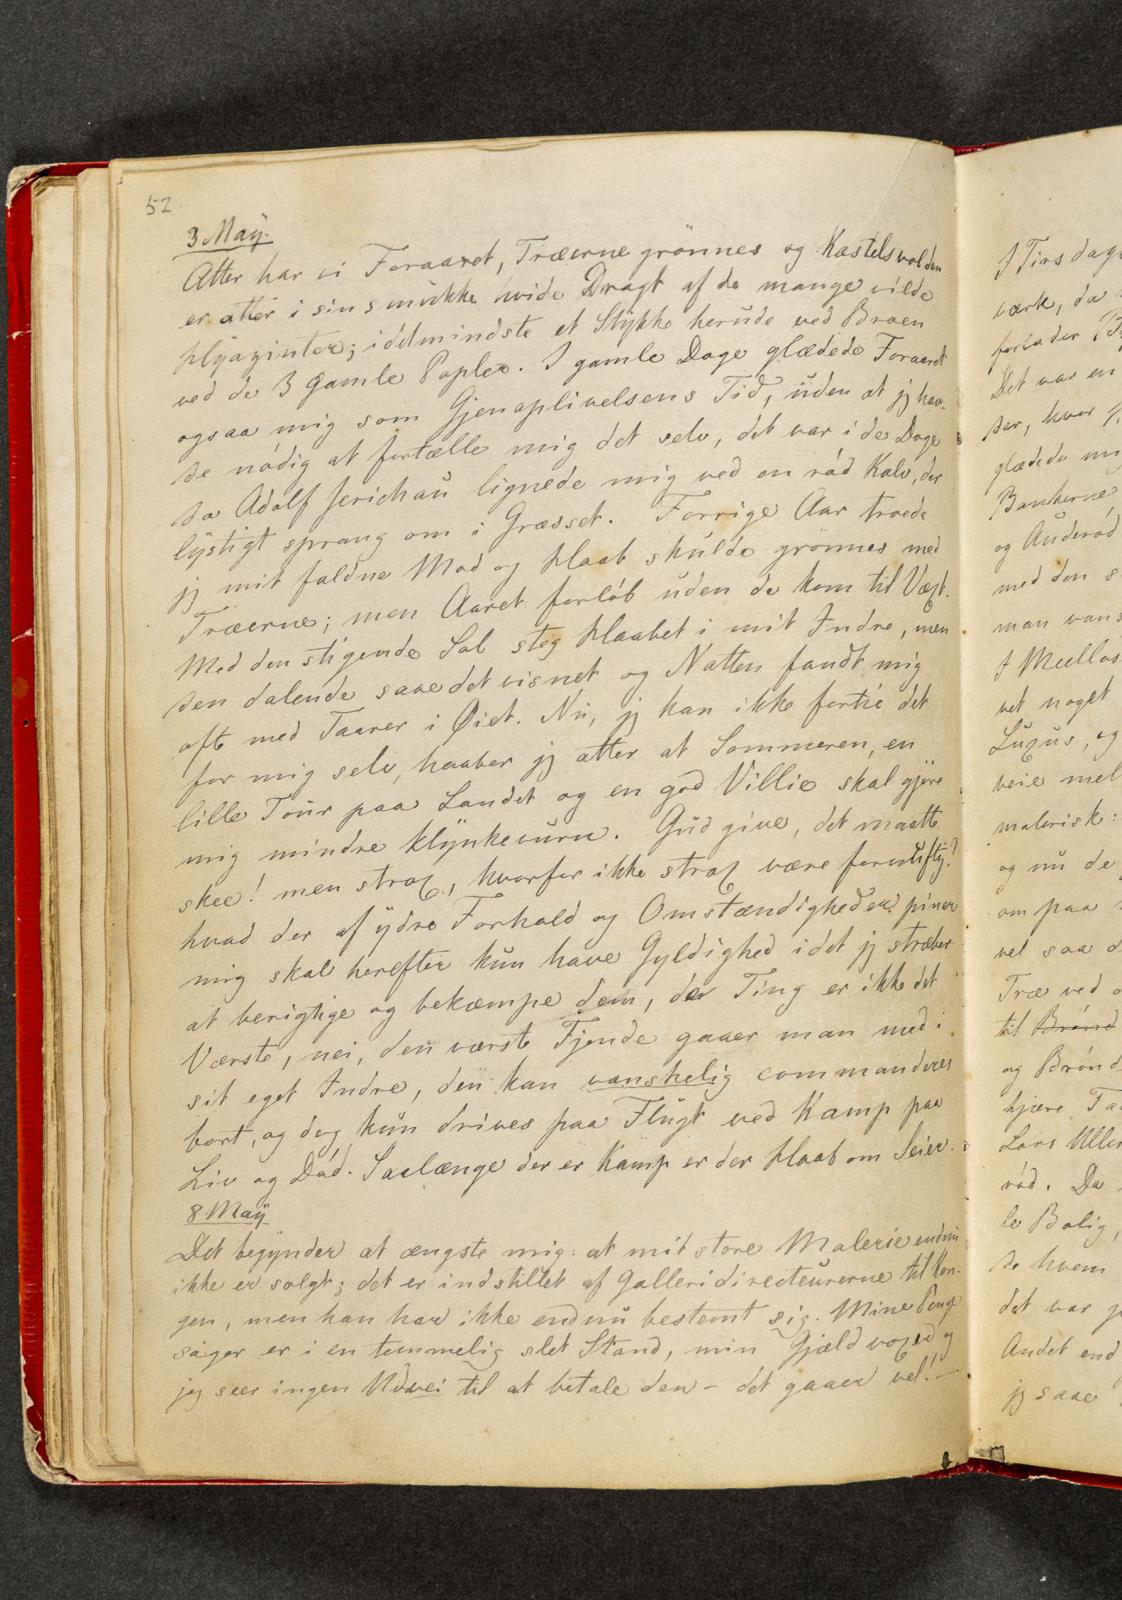 52
3 Maÿ
Atter har vi Foraaret, Træerne grønnes og Kastelsvolden
er atter i sin smukke hvide Dragt af de mange vilde
Hÿazinter; idetmindste et Stÿkke herude ved Broen
ved de 3 gamle Popler. I gamle Dage glædede Foraaret
ogsaa mig som Gjenoplivelsens Tid, uden at jeg hav-
de nódig at fortælle mig det selv, det var i de Dage
da Adolf Jerichau lignede mig ved en rád Kalv, der
lÿstigt sprang om i Græsset. Forrige Aar troede
jeg mit faldne Mod og Haab skulde grønnes med
Træerne; men Aaret forlób uden de kom til Væxt.
Med den stigende Sol steg Haabet i mit Indre, men
den dalende saae det visnet og Natten fandt mig
ofte med Taarer i Øiet. Nu, jeg kan ikke fortie det
for mig selv, haaber jeg atter at Sommeren, en
lille Tour paa Landet og en god Villie skal gjøre
mig mindre klÿnkevurn. Gud give, det maatte
skee! men strax, hvorfor ikke strax være fornuftig?
hvad der af ÿdre Forhold og Omstændigheder piner
mig skal herefter kun have Gyldighed idet jeg stræber
at berigtige og bekæmpe dem, der Ting er ikke det
Værste, nei, den værste Fjende gaaer man med i
sit eget Indre, den kan vanskelig commanderes
bort, og dog kun drives paa Flugt ved Kamp paa
Liv og Dód. Saalænge der er Kamp er der Haab om Seier.
8 Maÿ
Det begynder at ængste mig at mit store Malerie endnu
ikke er solgt; det er indstillet af Galleridirecteurerne til Kon-
gen, men han har ikke endnu bestemt sig. Mine Penge
sager er i en temmelig slet Stand, min Gjæld voxer og
jeg seer ingen Udvei til at betale den – det gaaer vel! –
I Tirsdags
værk, da
Det var en
der, hvor
glædede
Bønderne
og Anderód
med den s
man vans
vet noget
Luxus, og
veie mel
malerisk:
og nu de
om paa
vel saa d
Træ ved
til Brónd
og Brónd
kjære
Lars
ród. Da
le Bolig,
de hvem
det var
Andet end
jeg saae